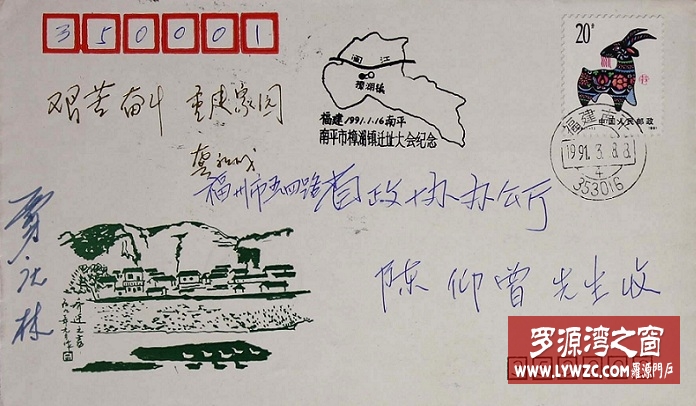 350001
闽江
樟湖镇
福建 1991.1.16 南平
南平市樟湖镇迁址大会纪念
20分
中国人民邮政
1991
福建南平
1991.3.8.8
4
353016
艰苦奋斗 重建家园
福州市五四路省政协办公厅
陈仰曾先生收
罗源湾之窗
WWW.LYWZC.COM
羅源門戶